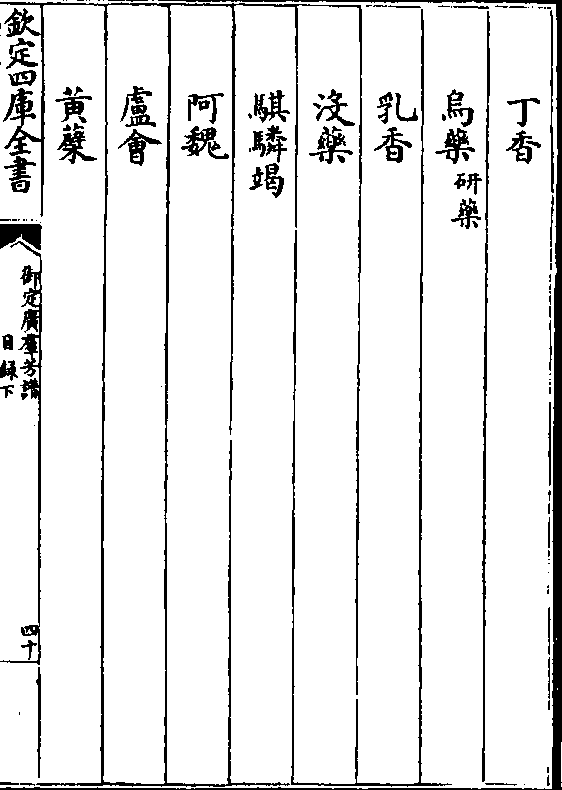 丁香
烏藥 研藥
乳香
沒藥
騏驎竭
阿魏
盧會
黃蘗
欽定四庫全書
御定廣羣芳譜
目録下
四十